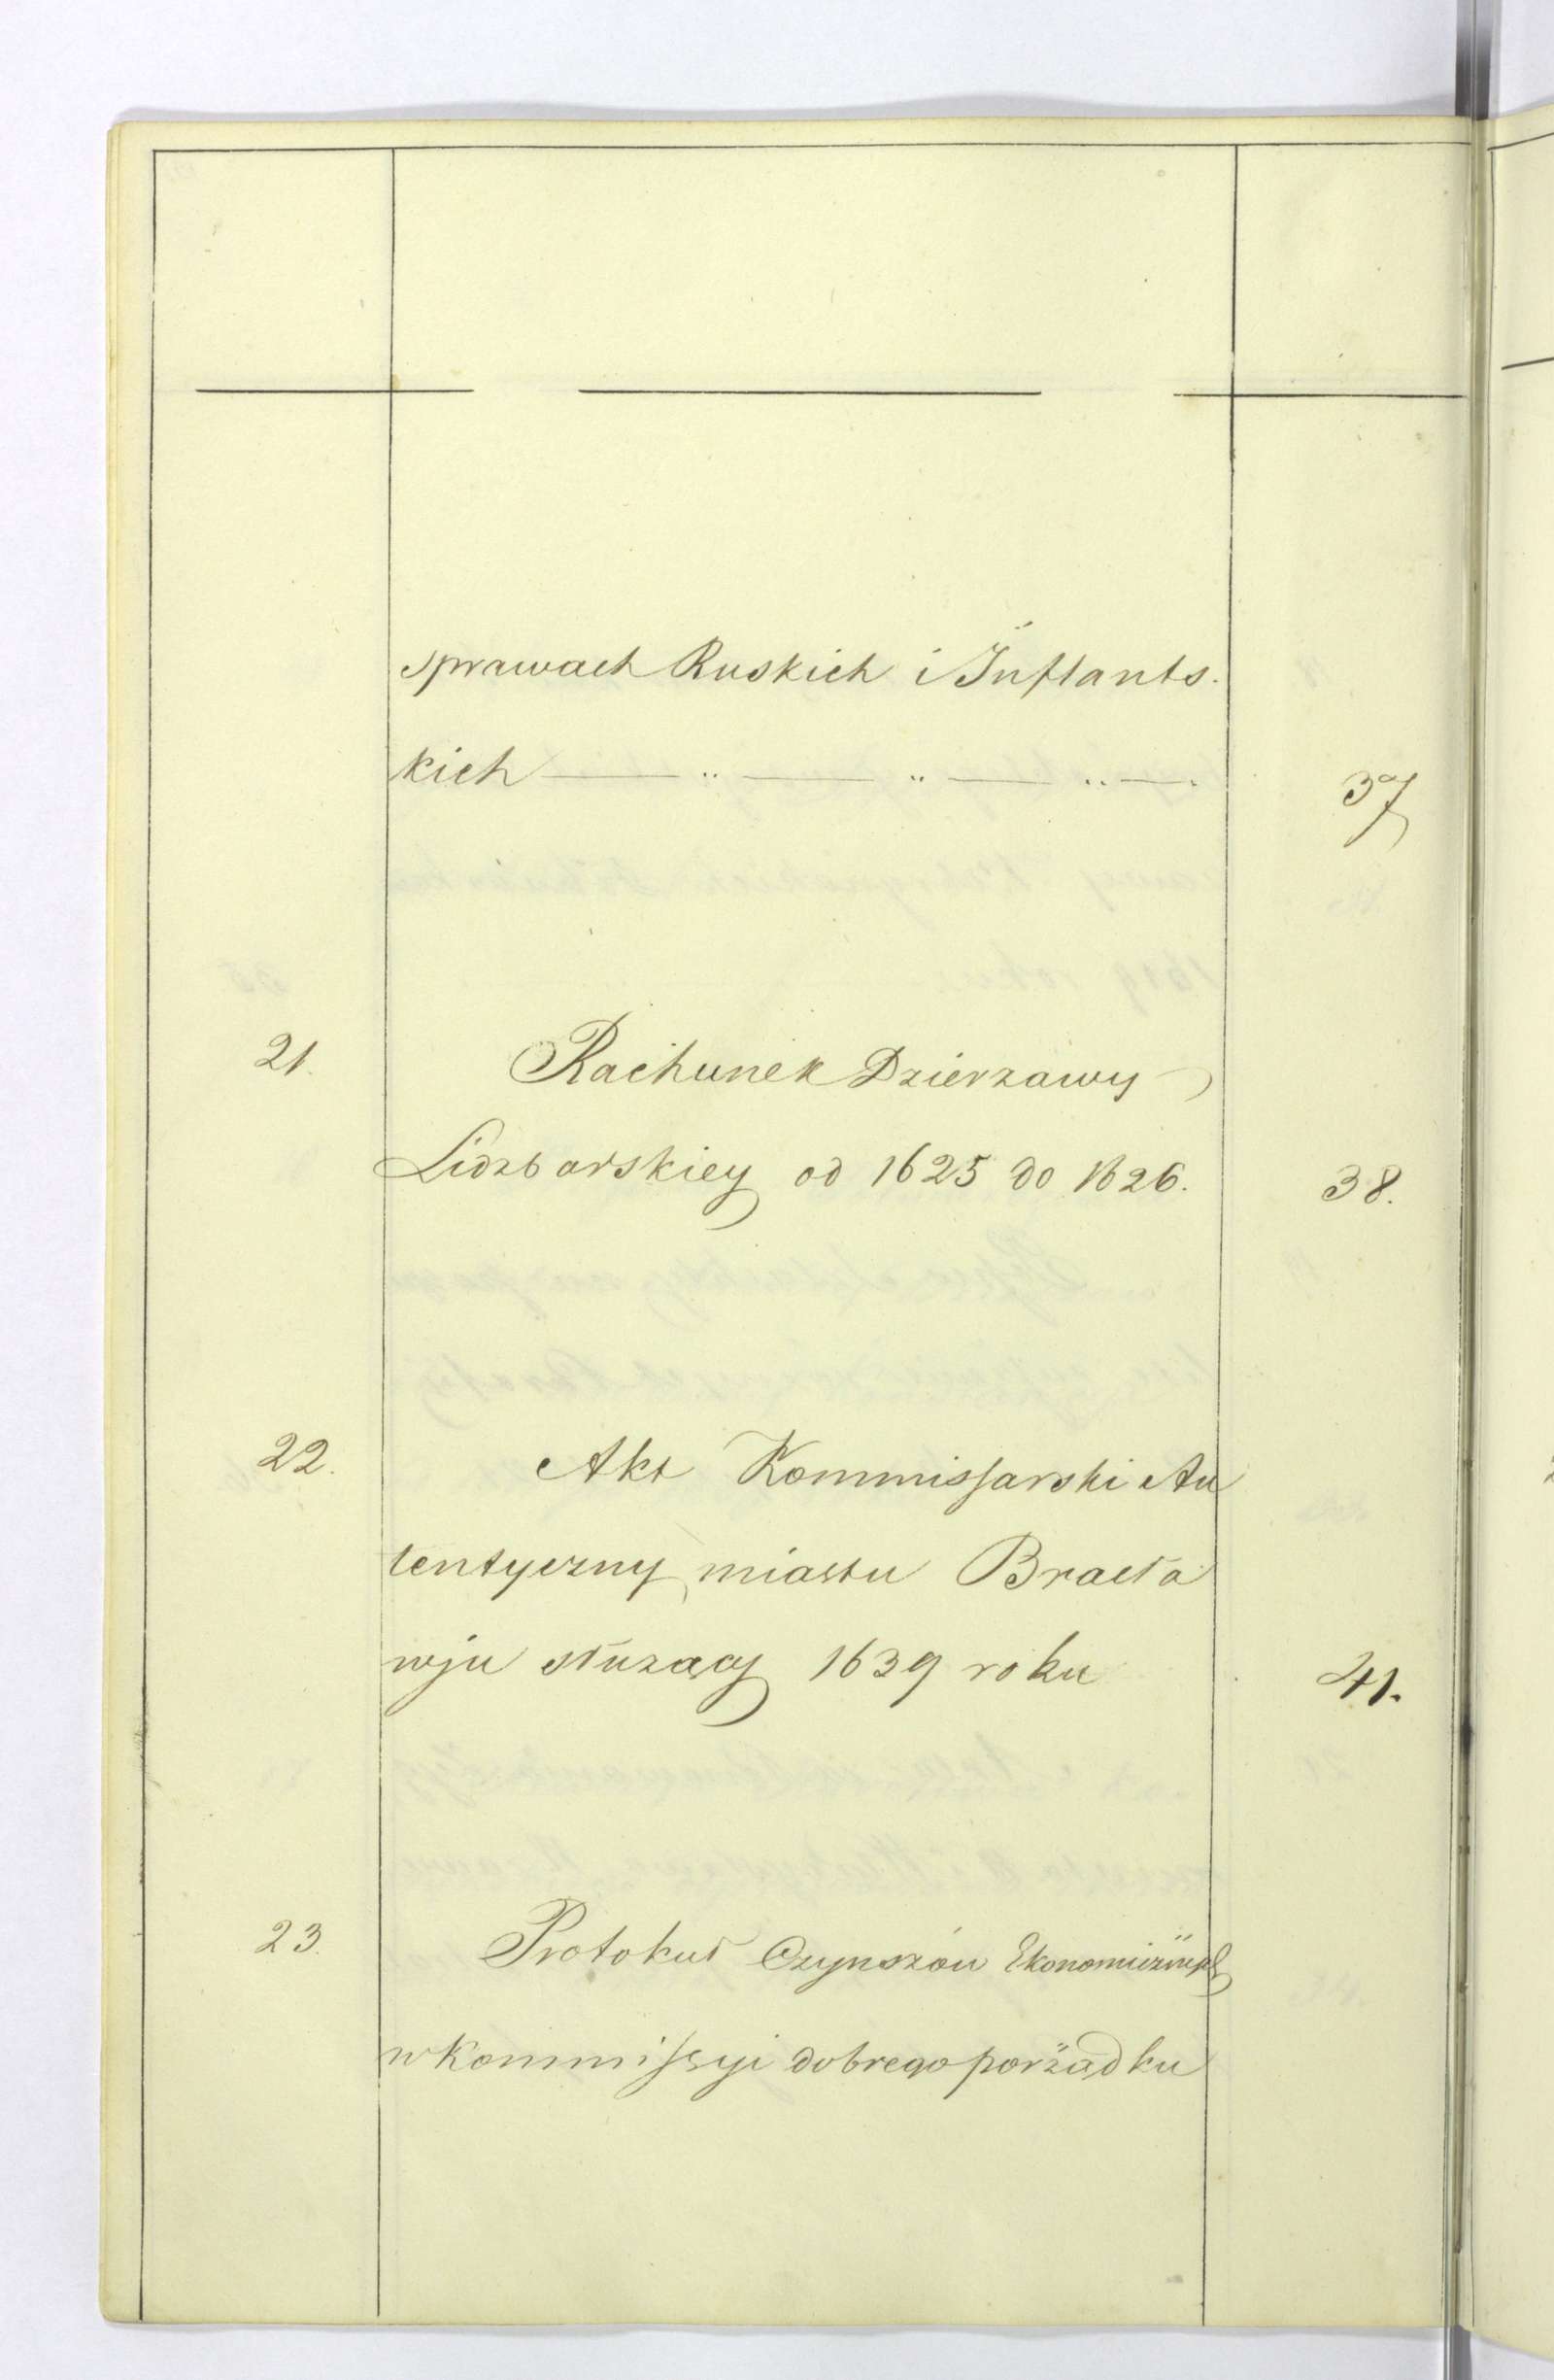 sprawach Ruskich i Inflants.
kich — " — " — " — 37
21. Rachunek Dzierzawy
Lidzbarskiey od 1625 do 1626. 38.
22. Akt Kommissarski Au
tentyczny miastu Bracła
wju słuzący 1639 roku 41.
23. Protokuł Czynszów
w Kommissyi dobrego porządku